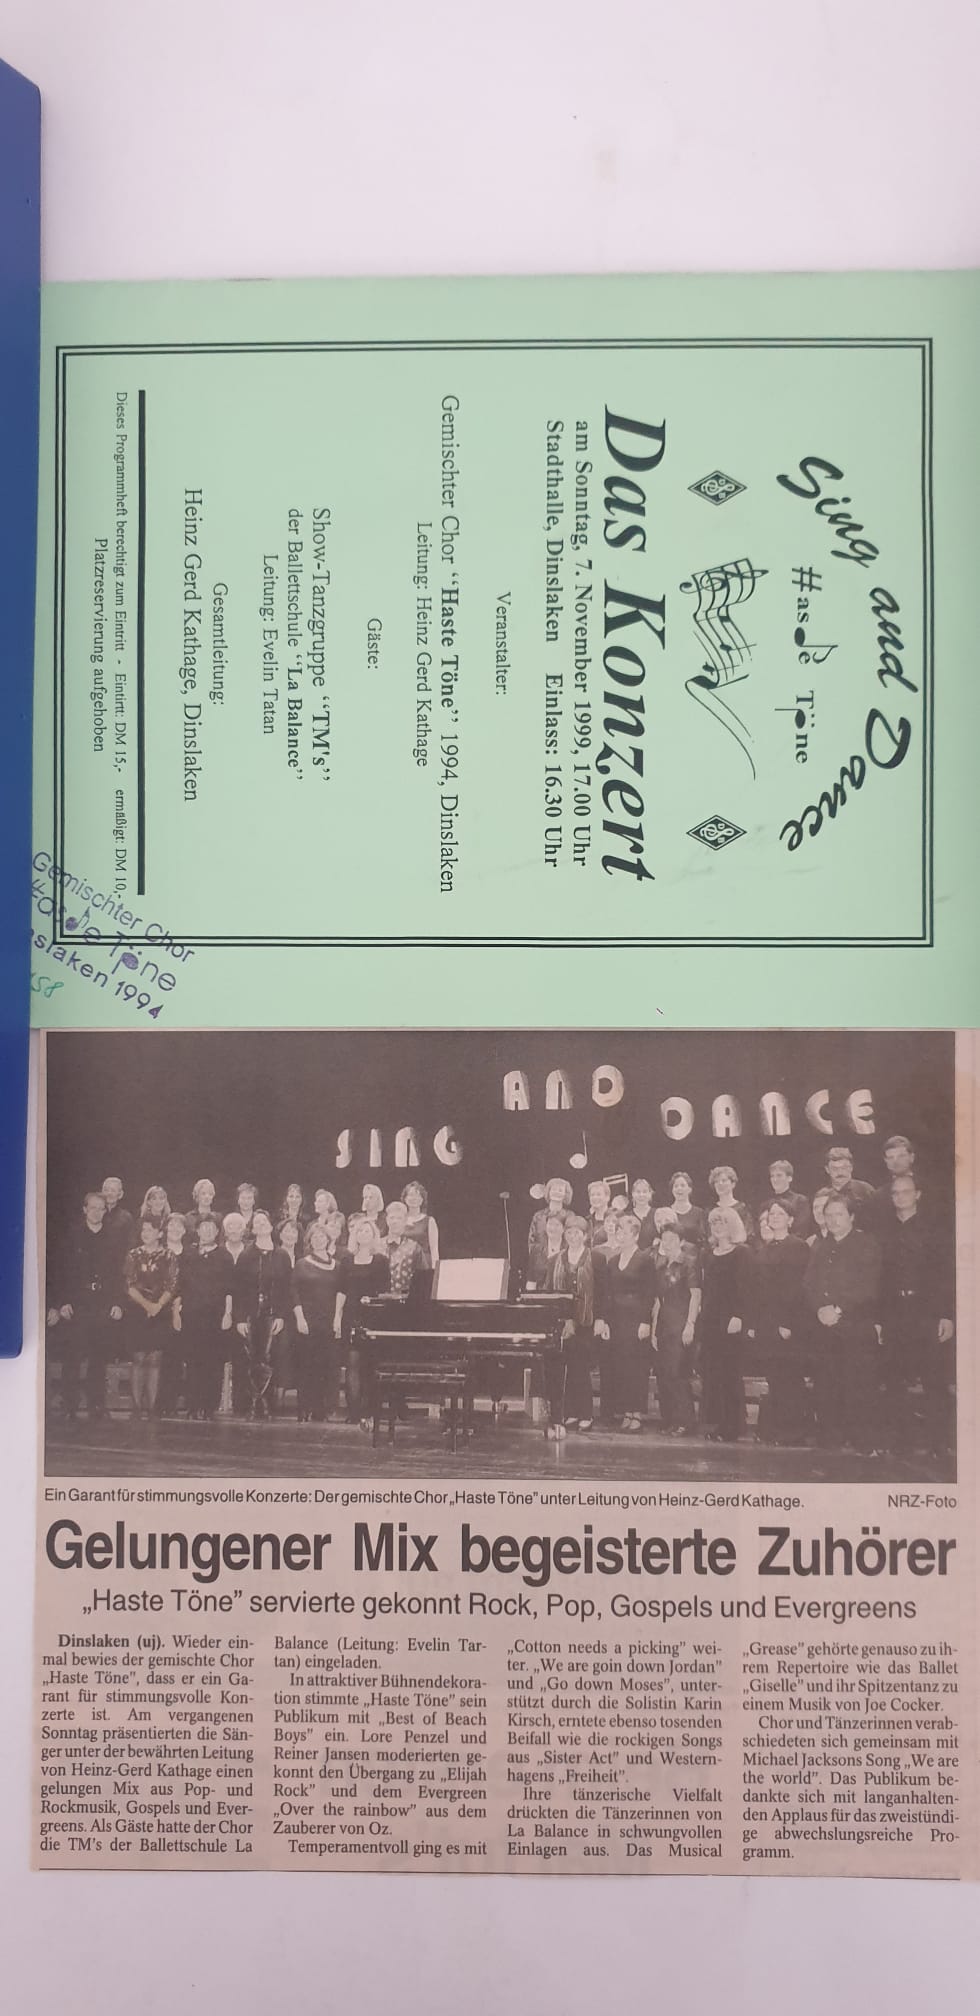 Sing and Dance
#asde Töne
Das Konzert
am Sonntag, 7. November 1999, 17.00 Uhr
Stadthalle, Dinslaken Einlass: 16.30 Uhr
Veranstalter:
Gemischter Chor “Haste Töne” 1994, Dinslaken
Leitung: Heinz Gerd Kathage
Gäste:
Show-Tanzgruppe “TM's”
der Ballettschule “La Balance”
Leitung: Evelin Tatan
Gesamtleitung:
Heinz Gerd Kathage, Dinslaken
Dieses Programmheft berechtigt zum Eintritt - Eintirtt: DM 15,- ermäßigt: DM 10,-
Platzreservierung aufgehoben
Gemischter Chor
#asche Töne
slaken 1994
158
SING AND DANCE
Ein Garant für stimmungsvolle Konzerte: Der gemischte Chor „Haste Töne” unter Leitung von Heinz-Gerd Kathage. NRZ-Foto
Gelungener Mix begeisterte Zuhörer
„Haste Töne” servierte gekonnt Rock, Pop, Gospels und Evergreens
Dinslaken (uj). Wieder ein-
mal bewies der gemischte Chor
„Haste Töne”, dass er ein Ga-
rant für stimmungsvolle Kon-
zerte ist. Am vergangenen
Sonntag präsentierten die Sän-
ger unter der bewährten Leitung
von Heinz-Gerd Kathage einen
gelungen Mix aus Pop- und
Rockmusik, Gospels und Ever-
greens. Als Gäste hatte der Chor
die TM’s der Ballettschule La
Balance (Leitung: Evelin Tar-
tan) eingeladen.
In attraktiver Bühnendekora-
tion stimmte „Haste Töne” sein
Publikum mit „Best of Beach
Boys” ein. Lore Penzel und
Reiner Jansen moderierten ge-
konnt den Übergang zu „Elijah
Rock” und dem Evergreen
„Over the rainbow” aus dem
Zauberer von Oz.
Temperamentvoll ging es mit
„Cotton needs a picking” wei-
ter. „We are goin down Jordan”
und „Go down Moses”, unter-
stützt durch die Solistin Karin
Kirsch, erntete ebenso tosenden
Beifall wie die rockigen Songs
aus „Sister Act” und Western-
hagens „Freiheit”.
Ihre tänzerische Vielfalt
drückten die Tänzerinnen von
La Balance in schwungvollen
Einlagen aus. Das Musical
„Grease” gehörte genauso zu ih-
rem Repertoire wie das Ballet
„Giselle” und ihr Spitzentanz zu
einem Musik von Joe Cocker.
Chor und Tänzerinnen verab-
schiedeten sich gemeinsam mit
Michael Jacksons Song „We are
the world”. Das Publikum be-
dankte sich mit langanhalten-
den Applaus für das zweistündi-
ge abwechslungsreiche Pro-
gramm.